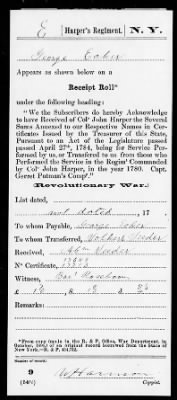 E | Harper's Regiment. | N. Y.
George Eaker
Appears as shown below on a
Receipt Roll*
under the following heading:
"We the Subscribers do hereby Acknowledge
to have Received of Col° John Harper the Several
Sums Annexed to our Respective Names in Cer-
tificates Issued by the Treasurer of this State,
Pursuant to an Act of the Legislature passed
passed April 27th, 1784, being for Service Per-
formed by us, or Transferred to us from those who
Performed the Service in the Regim' Commanded
by Col° John Harper, in the year 1780. Capt.
Gerret Putman's Comp'."
(Revolutionary War.)
List dated,
not dated , 17 .
To whom Payable, George
To whom Transferred, Volkert Veeder
Received, Ab'm Veeder
N° Certificate,
Witness, Bar' Roseboom
£
Remarks:
*From copy (made in the R. & P. Office, War Department, in
original record borrowed from the State of
New York.—R. & P.
Number of record:
9
Harrison
Copyist.